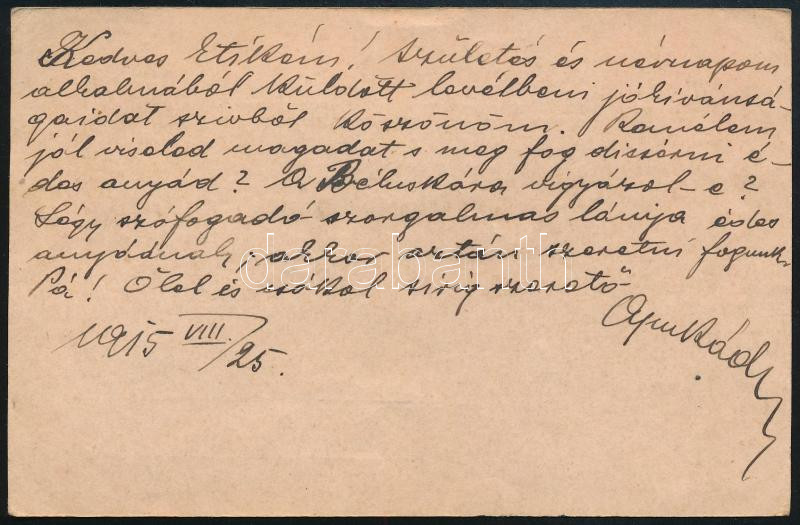 Kedves Etikém! Születés és névnapom
alkalmából küldött levélbeni jókivánsá-
gaidat szivből köszönöm. Remélem
jól viseled magadat s meg fog dicsérni é-
des anyád? A Beluskára vigyázol-e?
Légy szófogadó szorgalmas lánya édes
anyádnak, akkor aztán szeretni fogunk.
Pá! Ölel és csókol sirig szerető
Apukád
1915 VIII/25.
darabanth